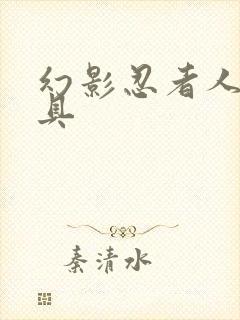 幻影忍者人
具
秦清水